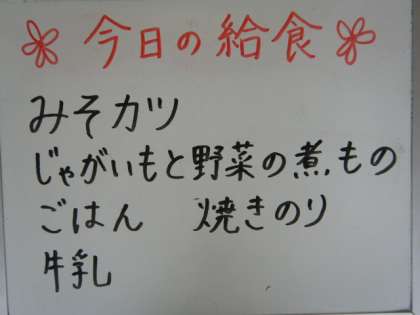 今日の給食
みそカツ
じゃがいもと野菜の煮もの
ごはん 焼きのり
牛乳